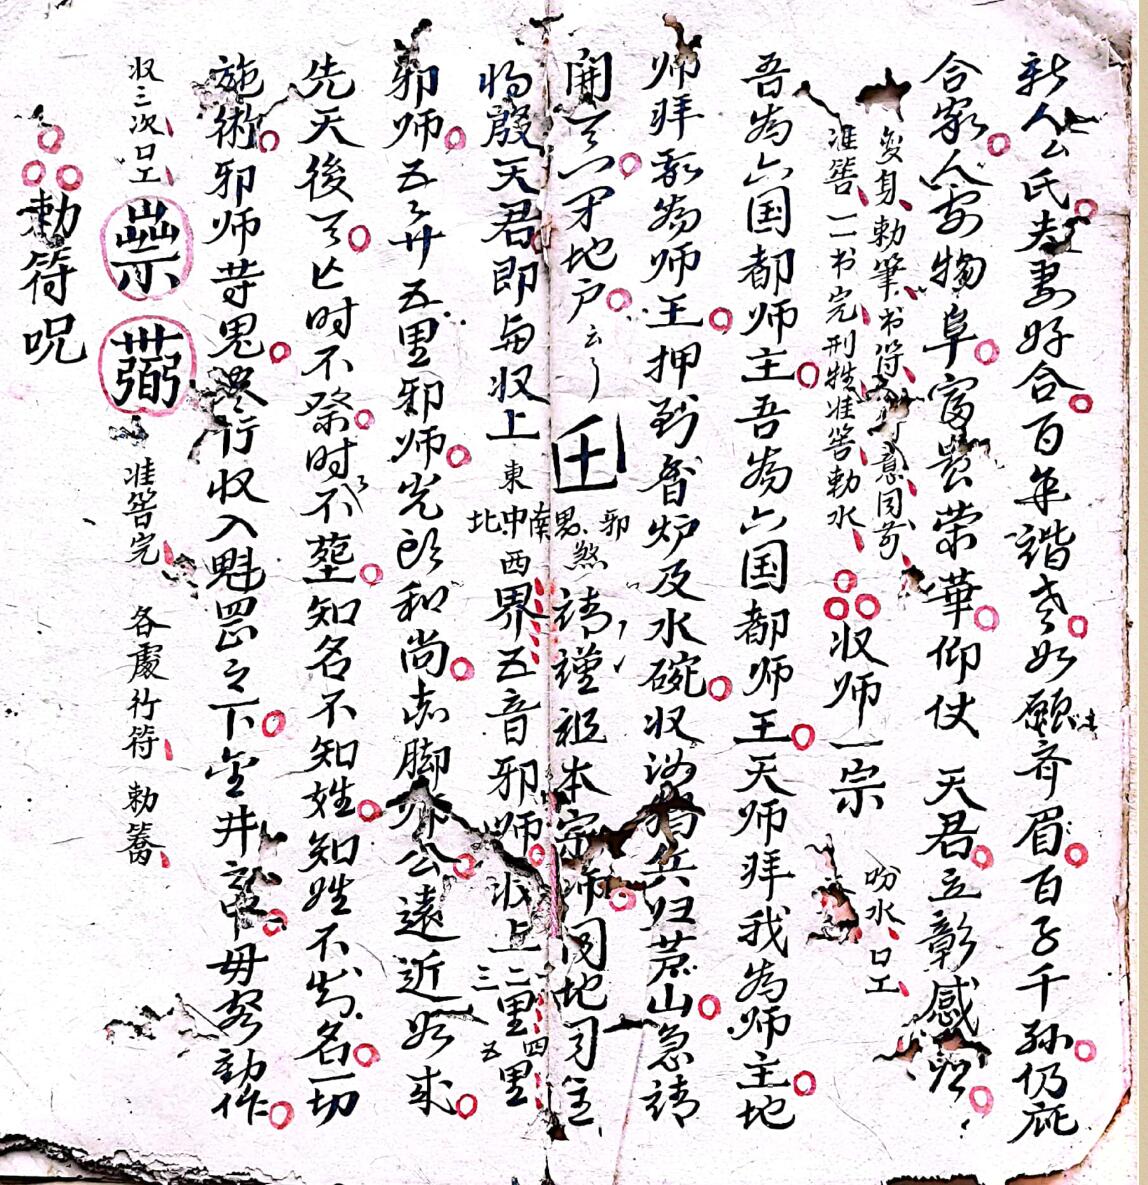 新人厶氏夫妻好合百年諧老如願齐眉百子千孙仍庇
合家人安物阜富貴荣華仰仗 天君立彰感
变身勅筆书符意同前
准筶一书完刑牲准筶勅水
收师一宗
吩水口工
吾为六国都师主吾为六国都师王天师拜我为师主地
师拜我为师王押到香炉及水碗收汝猖兵归茅山急請
開天门地户云了
邪鬼煞請謹祖本宗师同地司主
将殷天君即与收上東南中西北界五音邪师收上一二三里四五里
邪师五五廿五里邪师光郎和尚赤脚师公遠近一如式
先天後天亡时不祭时时不塟知名不知姓知姓不知名一切
施術邪师等鬼尽行收入魁罡之下金井毋努動作
收三次口工
准筶完 各處行符 勅
勅符呪